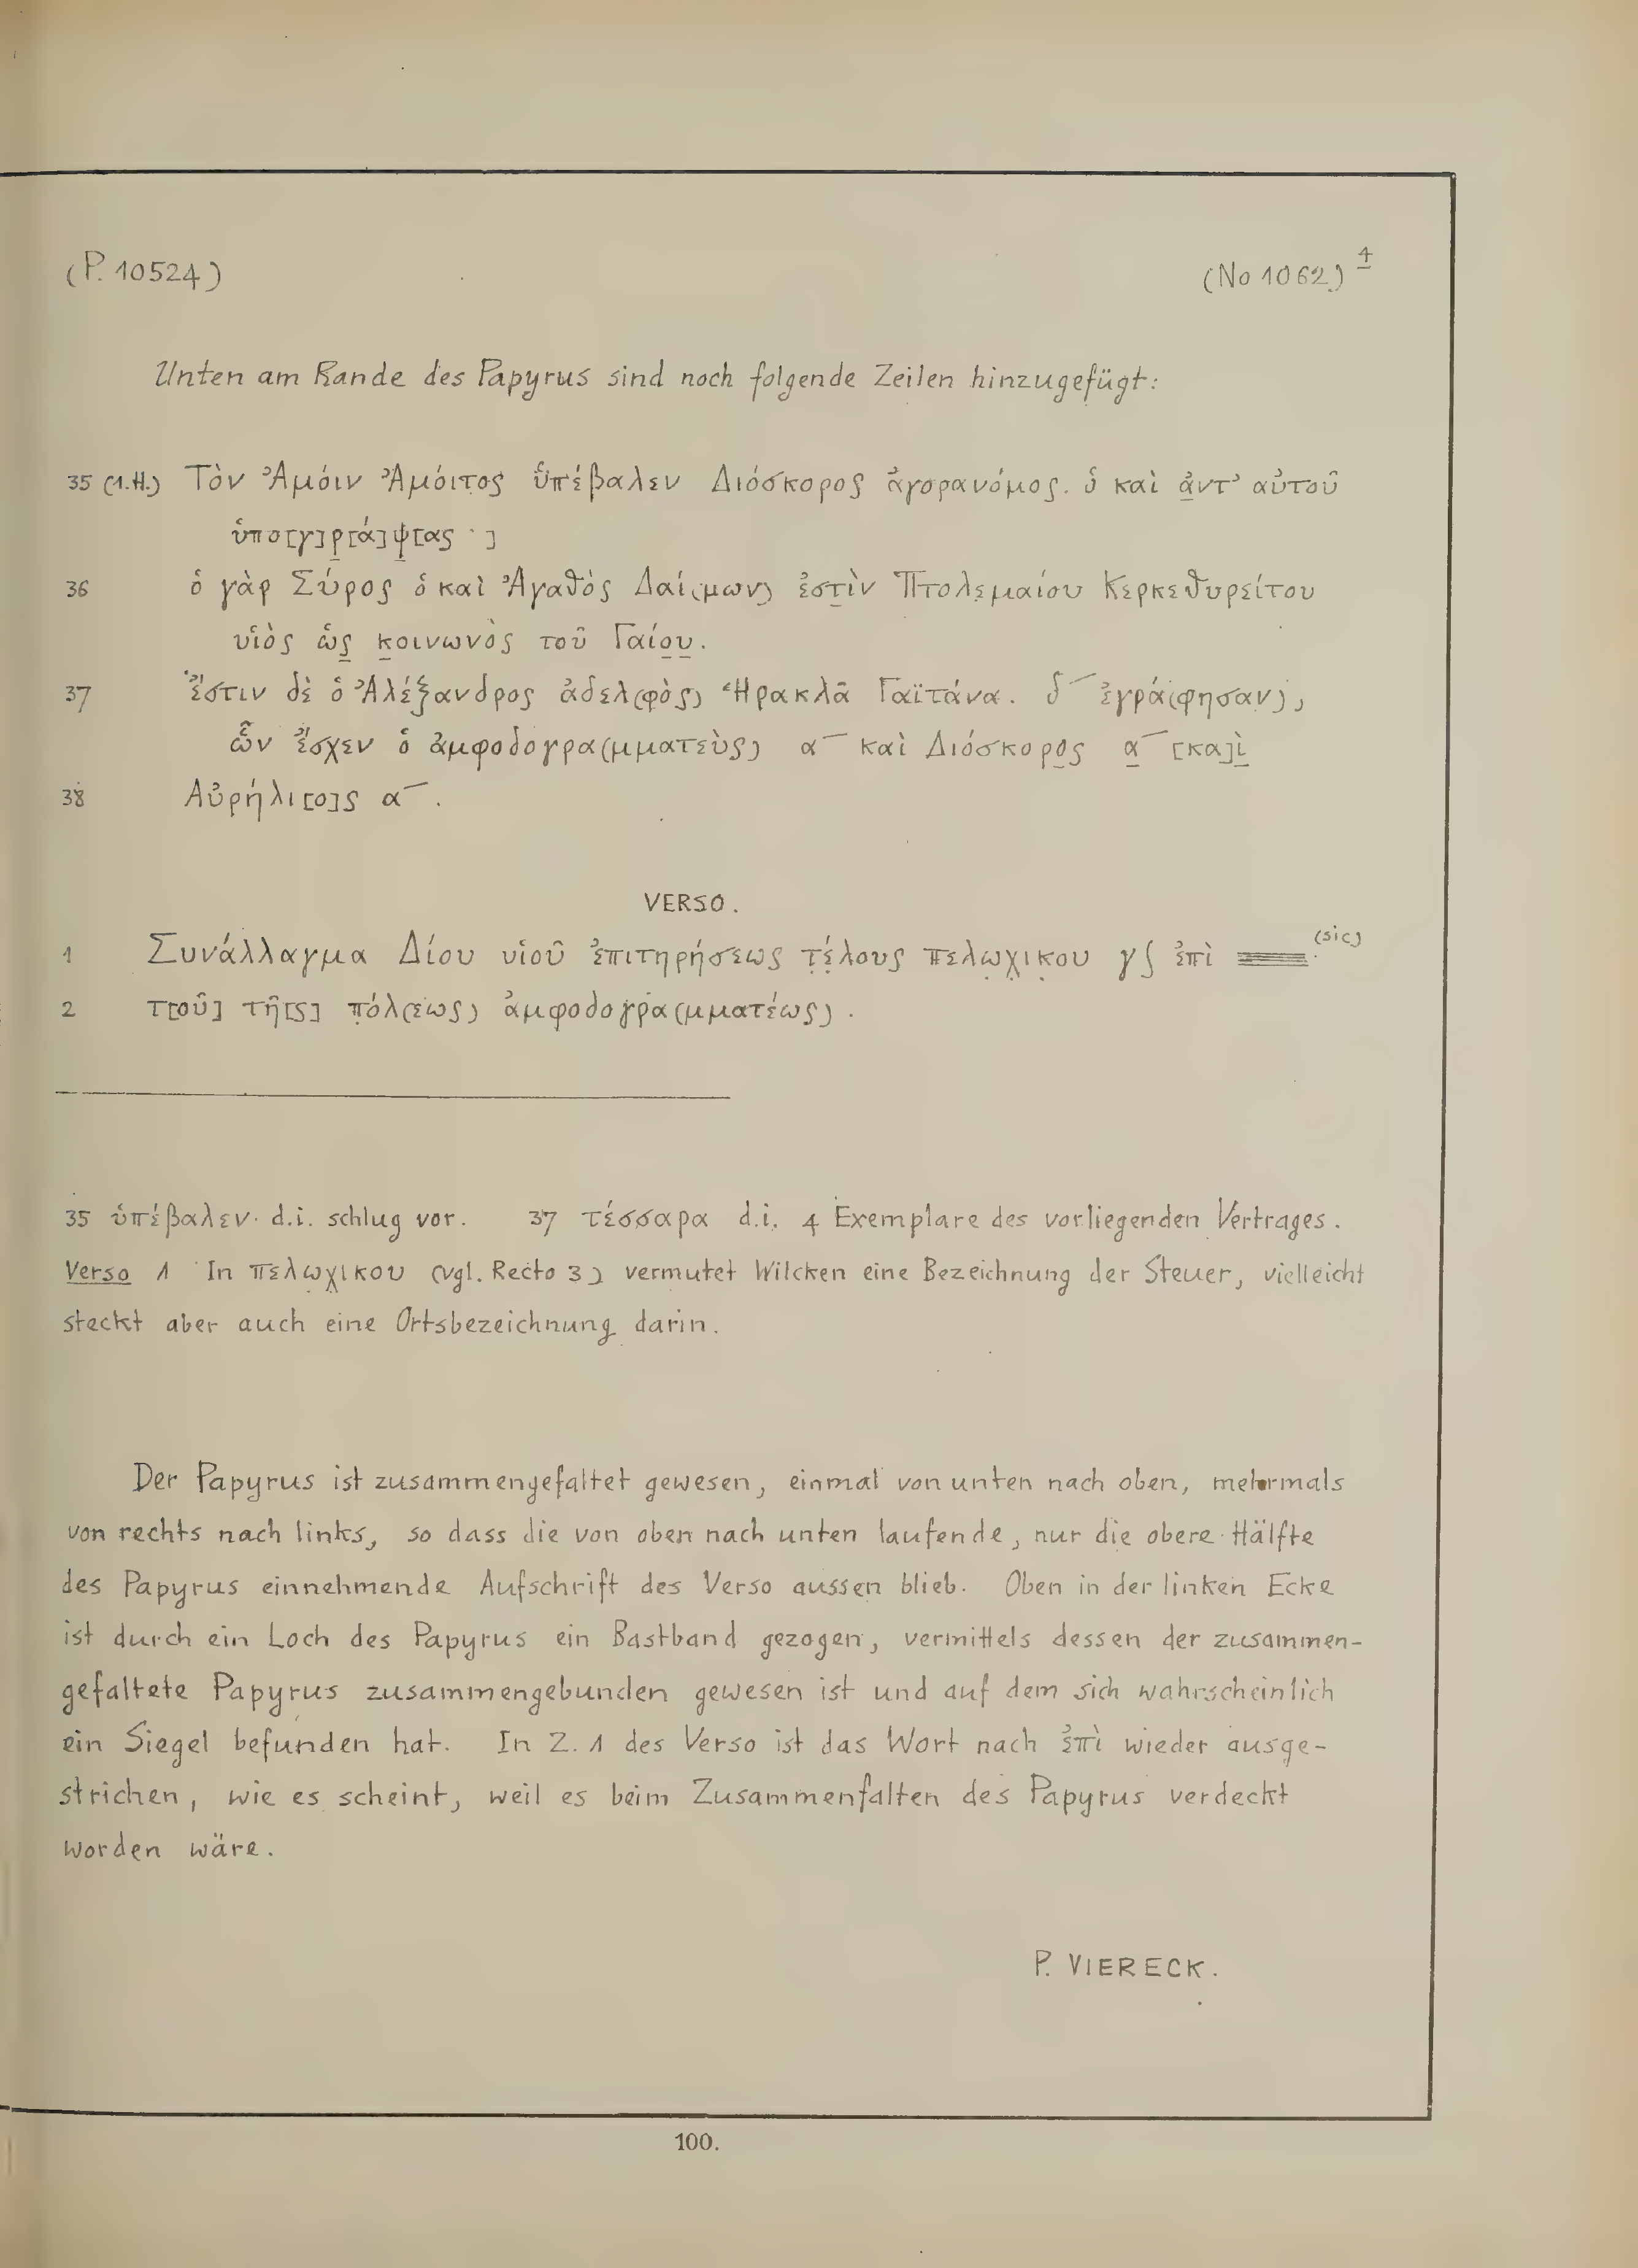 (P. 10524) (No 1062) 4
Unten am Rande des Papyrus sind noch folgende Zeilen hinzugefügt:
35 (1.H.) Τὸν Ἀμόιν Ἀμόιτος ὑπέβαλεν Διόσκορος ἀγορανόμος. ὁ καὶ ἀντ' αὐτοῦ
ὑπο[γ]ρ[ά]ψ[ας · ]
36 ὁ γὰρ Σύρος ὁ καὶ Ἀγαθὸς Δαί(μων) ἐστὶν Πτολεμαίου Κερκεθυρείτου
υἱὸς ὡς κοινωνὸς τοῦ Γαίου.
37 ἔστιν δὲ ὁ Ἀλέξανδρος ἀδελ(φὸς) Ἡρακλᾶ Γαϊτάνα. δ‾ ἐγρά(φησαν),
ὧν ἔσχεν ὁ ἀμφοδογρα(μματεὺς) α‾ καὶ Διόσκορος α‾ [κα]ὶ
38 Αὐρήλι[ο]ς α‾.
VERSO.
1 Συνάλλαγμα Δίου υἱοῦ ἐπιτηρήσεως τέλους πελωχικου γʃ ἐπὶ (sic)
2 τ[οῦ] τῆ[ς] πόλ(εως) ἀμφοδογρα(μματέως).
35 ὑπέβαλεν· d.i. schlug vor. 37 τέσσαρα d.i. 4 Exemplare des vorliegenden Vertrages.
Verso 1 In πελωχικου (vgl. Recto 3) vermutet Wilcken eine Bezeichnung der Steuer, vielleicht
steckt aber auch eine Ortsbezeichnung darin.
Der Papyrus ist zusammengefaltet gewesen, einmal von unten nach oben, mehrmals
von rechts nach links, so dass die von oben nach unten laufende, nur die obere Hälfte
des Papyrus einnehmende Aufschrift des Verso aussen blieb. Oben in der linken Ecke
ist durch ein Loch des Papyrus ein Bastband gezogen, vermittels dessen der zusammen-
gefaltete Papyrus zusammengebunden gewesen ist und auf dem sich wahrscheinlich
ein Siegel befunden hat. In Z. 1 des Verso ist das Wort nach ἐπὶ wieder ausge-
strichen, wie es scheint, weil es beim Zusammenfalten des Papyrus verdeckt
worden wäre.
P. VIERECK.
100.